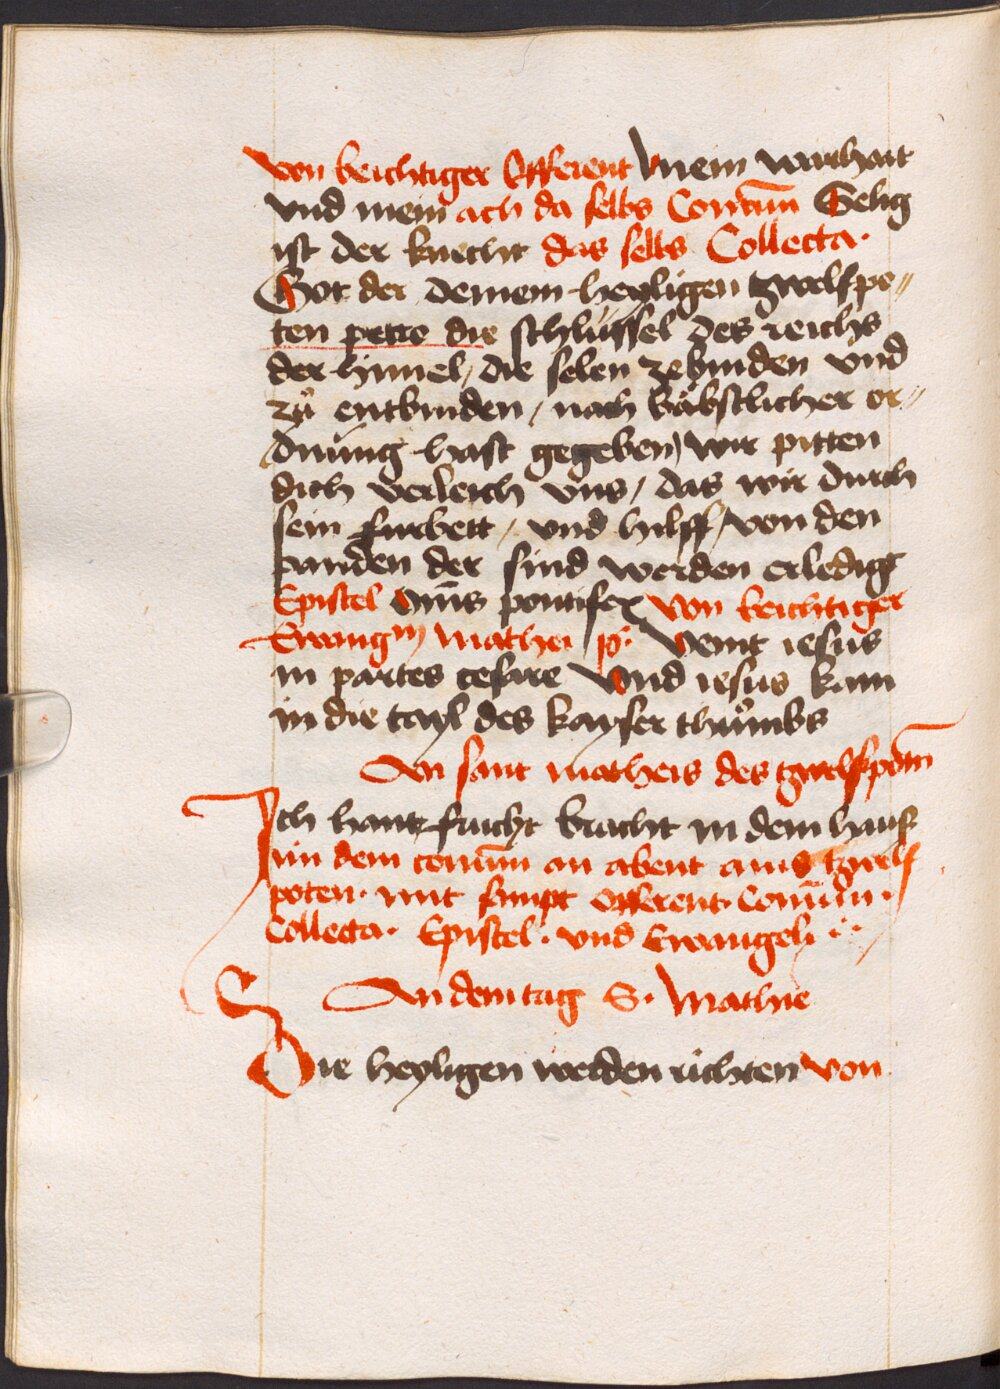 von beichtiger Offerent Mein warhait
vnd mein ach da selbs Comūn Selig
ist der knecht das selbs Collecta·
Got der deinem heyligen zwelfpo„
ten petro die schlüssel des reichs
der himel, die selen zebinden vnd
zů entbinden / nach bäbstlicher or„
dnüng hast gegeben) wir pitten
dich verleich vns / das wir durch
sein furbett / vnd hilff / von den
panden der sind werden erledigt
Epistel Om̄s pontifex von beichtiger
Ewangm Mathei Venit iesus
in partes cesaree Vnd iesus kam
in die tayl des kayser thůmbs
An sant matheis des zwelfpotn̄
Ich hant frucht bracht in dem hauß
im dem comūn an abent ains zwelf
poten· mit sampt Offerent· Comūn·
Collecta· Epistel· vnd Ewangeli
An dem tag S· Mathie
Die heyligen werden richten von